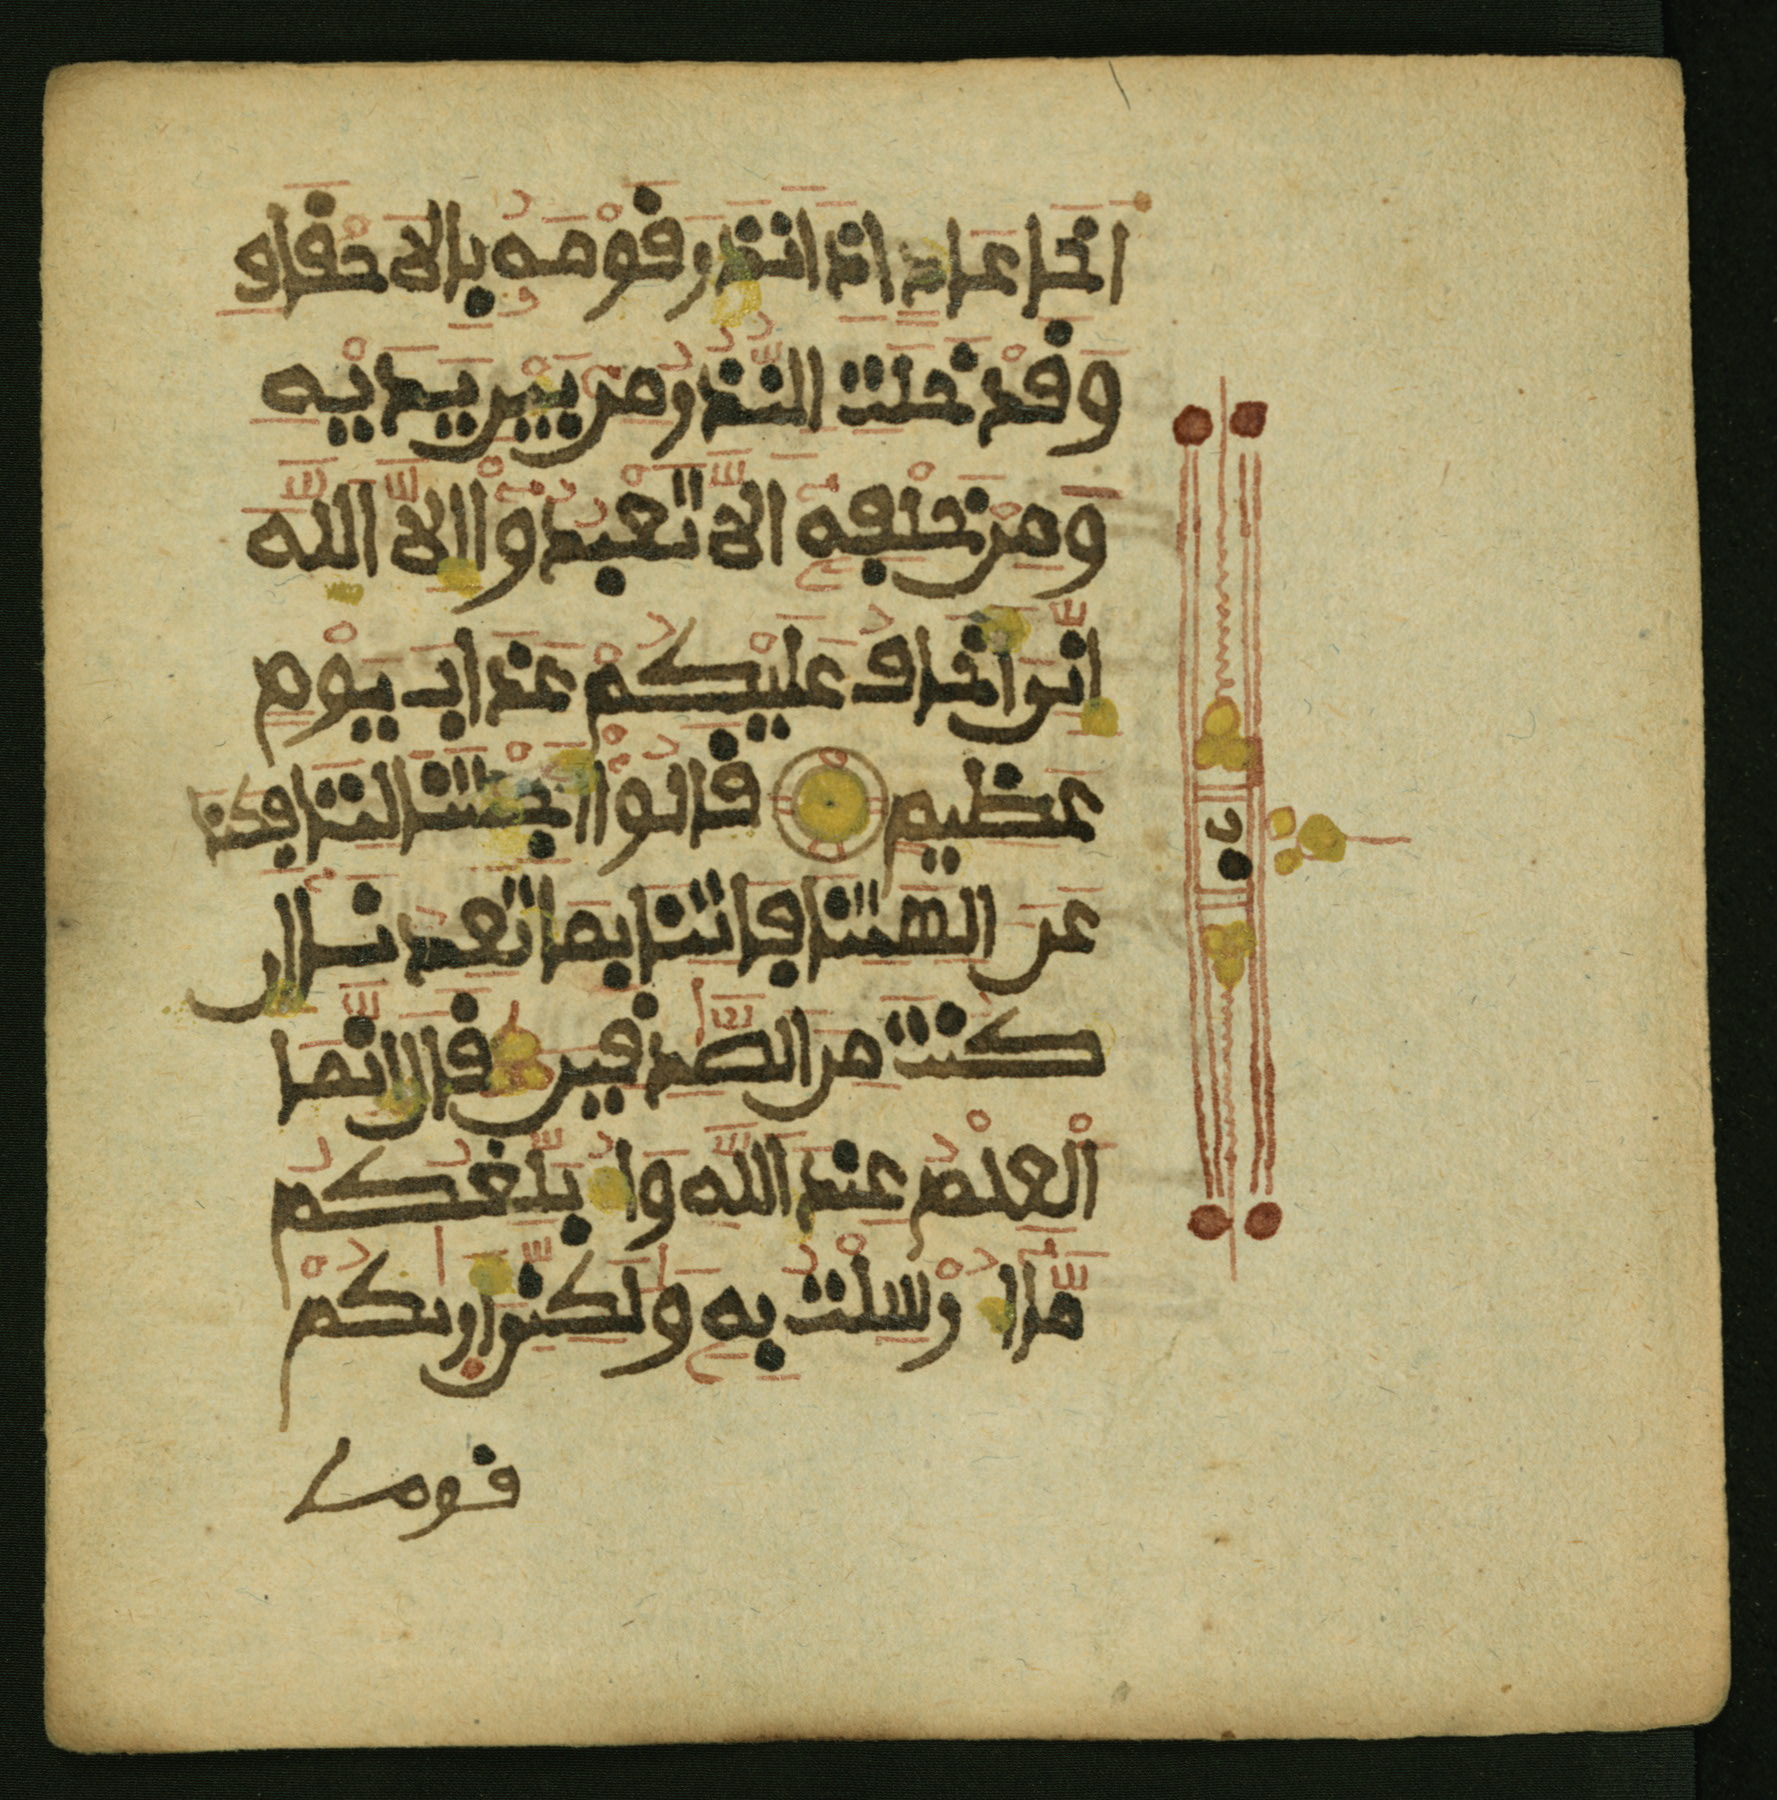 اخا عاد اذ انذر قومه بالاحقاف
وقد خلت النذر من بين يديه
ومن خلفه الا تعبدوا الا الله
اني اخاف عليكم عذاب يوم
عظيم قالوا اجئتنا لتافكنا
عن الهتنا فاتنا بما تعدنا ان
كنت من الصدقين قال انما
العلم عند الله وابلغكم
ما ارسلت به ولكني اريكم
قوما